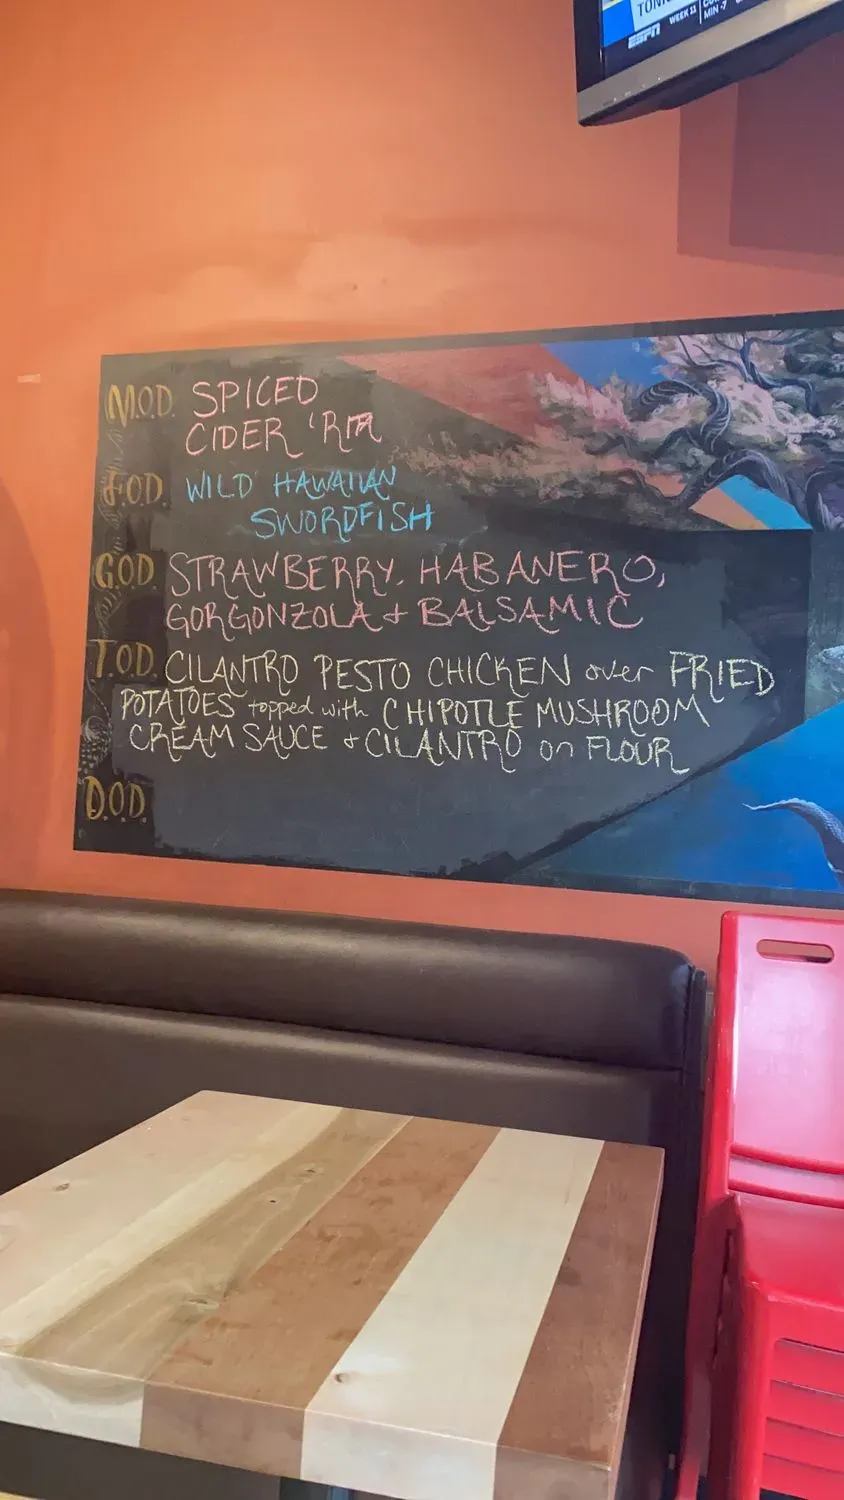 TONI
ESPN
WEEK 11
MIN -7
M.O.D. SPICED
CIDER 'RITA
F.O.D. WILD HAWAIIAN
SWORDFISH
G.O.D. STRAWBERRY, HABANERO,
GORGONZOLA + BALSAMIC
T.O.D. CILANTRO PESTO CHICKEN over FRIED
POTATOES topped with CHIPOTLE MUSHROOM
CREAM SAUCE + CILANTRO on FLOUR
D.O.D.